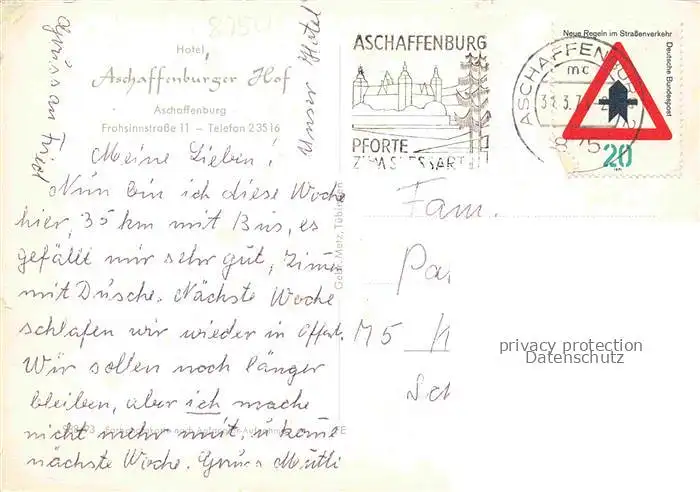 8750
Hotel
Aschaffenburger Hof
Aschaffenburg
Frohsinnstraße 11 – Telefon 23516
Meine Lieben!
Nun bin ich diese Woche
hier, 35 km mit Bus, es
gefällt mir sehr gut, Zimm
mit Dusche. Nächste Woche
schlafen wir wieder in
Wir sollen noch länger
bleiben, aber ich mache
nicht mehr mit, u komme
nächste Woche. Gruss Mutti
Gruss an
unser Hotel
Gebr. Metz, Tübingen
ASCHAFFENBURG
PFORTE
ZUM SPESSART
ASCHAFFENBURG
mc
875
Neue Regeln im Straßenverkehr
Deutsche Bundespost
20
1971
Fam.
Pa
M5
Sc
privacy protection
Datenschutz